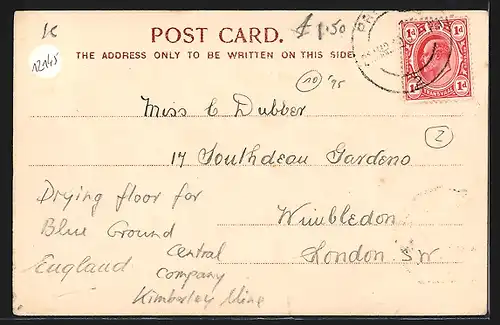 K
£1.50
POST CARD.
THE ADDRESS ONLY TO BE WRITTEN ON THIS SIDE
12145
10 '95
1d 1d
TRANSVAAL
1d 1d
Miss C Dubber
2
17 Southdean Gardens
Drying floor for
Wimbledon
Blue Ground
Central
London. SW
England
Company
Kimberley Mine